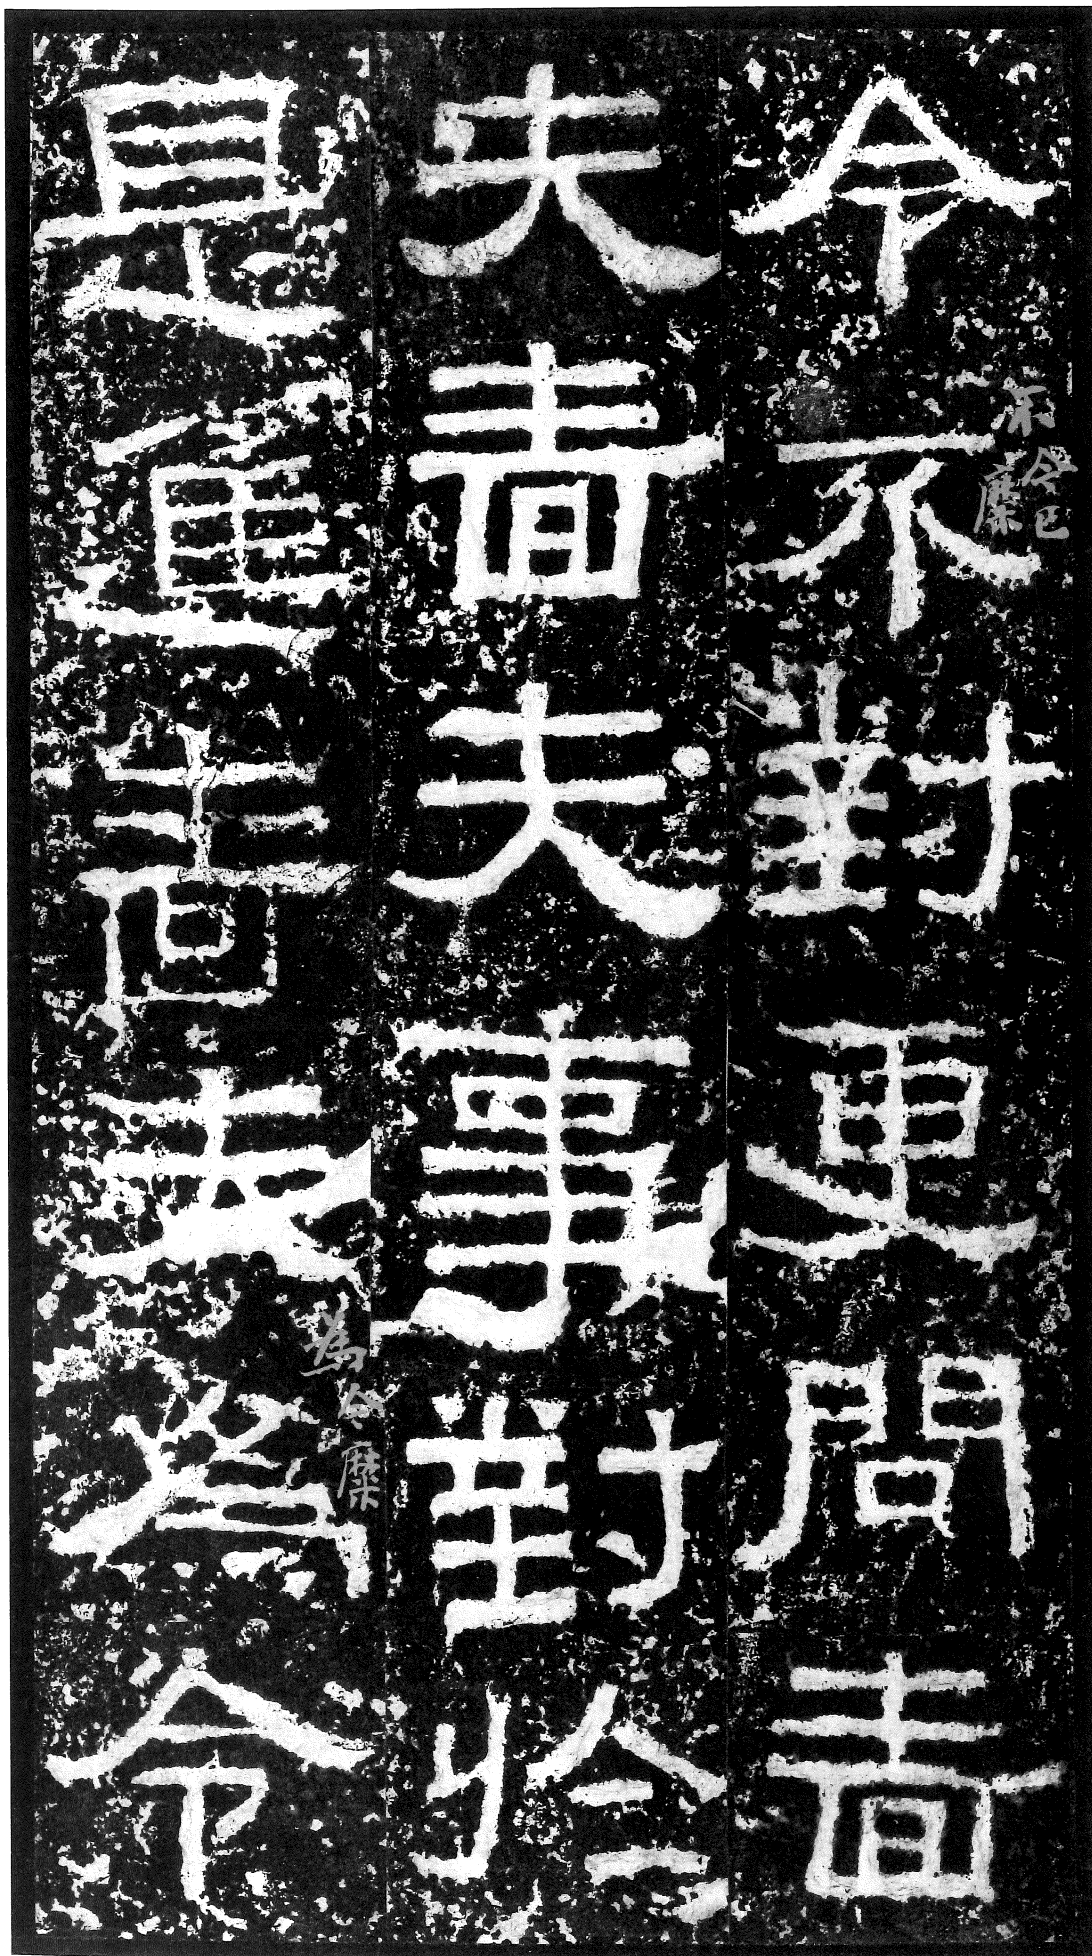 令不對更問嗇
不今已糜
夫嗇夫事對於
是進嗇夫為令
為今糜